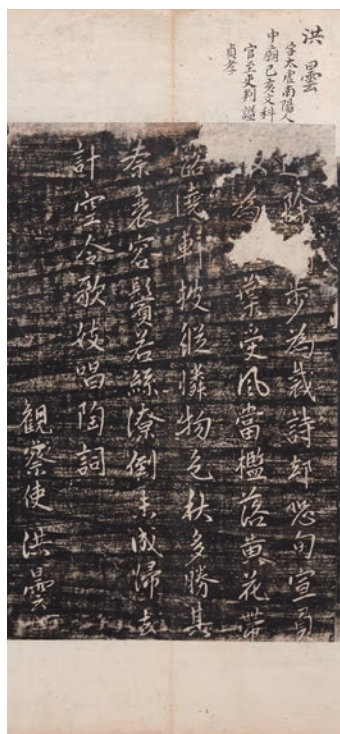 洪曇
字太虛南陽人
中廟己亥文科
官至吏判謚
貞孝
除步為裁詩却恐旬宣負
為葉受風當檻落黃花帶
露遶軒披縱憐物色秋多勝其
奈衰容鬢若絲潦倒未成歸去
計空令歌妓唱陶詞
觀察使洪曇